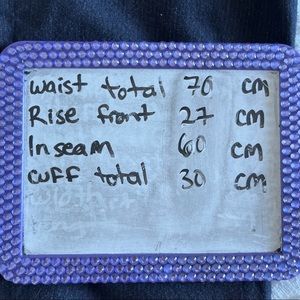 waist total 70 cm
Rise front 27 cm
Inseam 60 cm
cuff total 30 cm